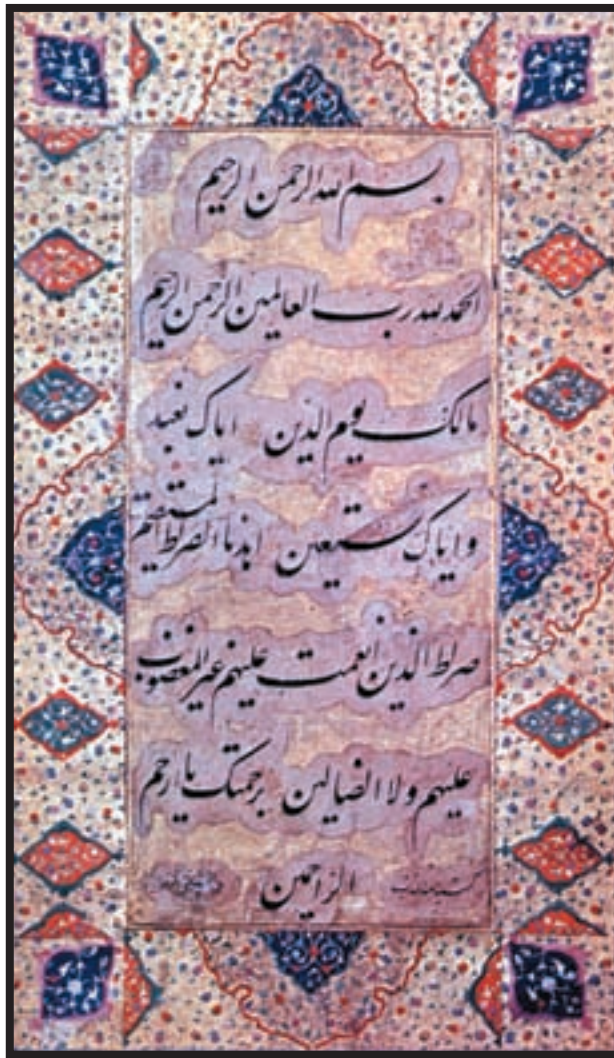 بسم الله الرحمن الرحیم
الحمد لله رب العالمین الرحمن الرحیم
مالک یوم الدین ایاک نعبد
و ایاک نستعین اهدنا الصراط المستقیم
صراط الذین انعمت علیهم غیر المغضوب
علیهم ولا الضالین برحمتک یا ارحم
الراحمین